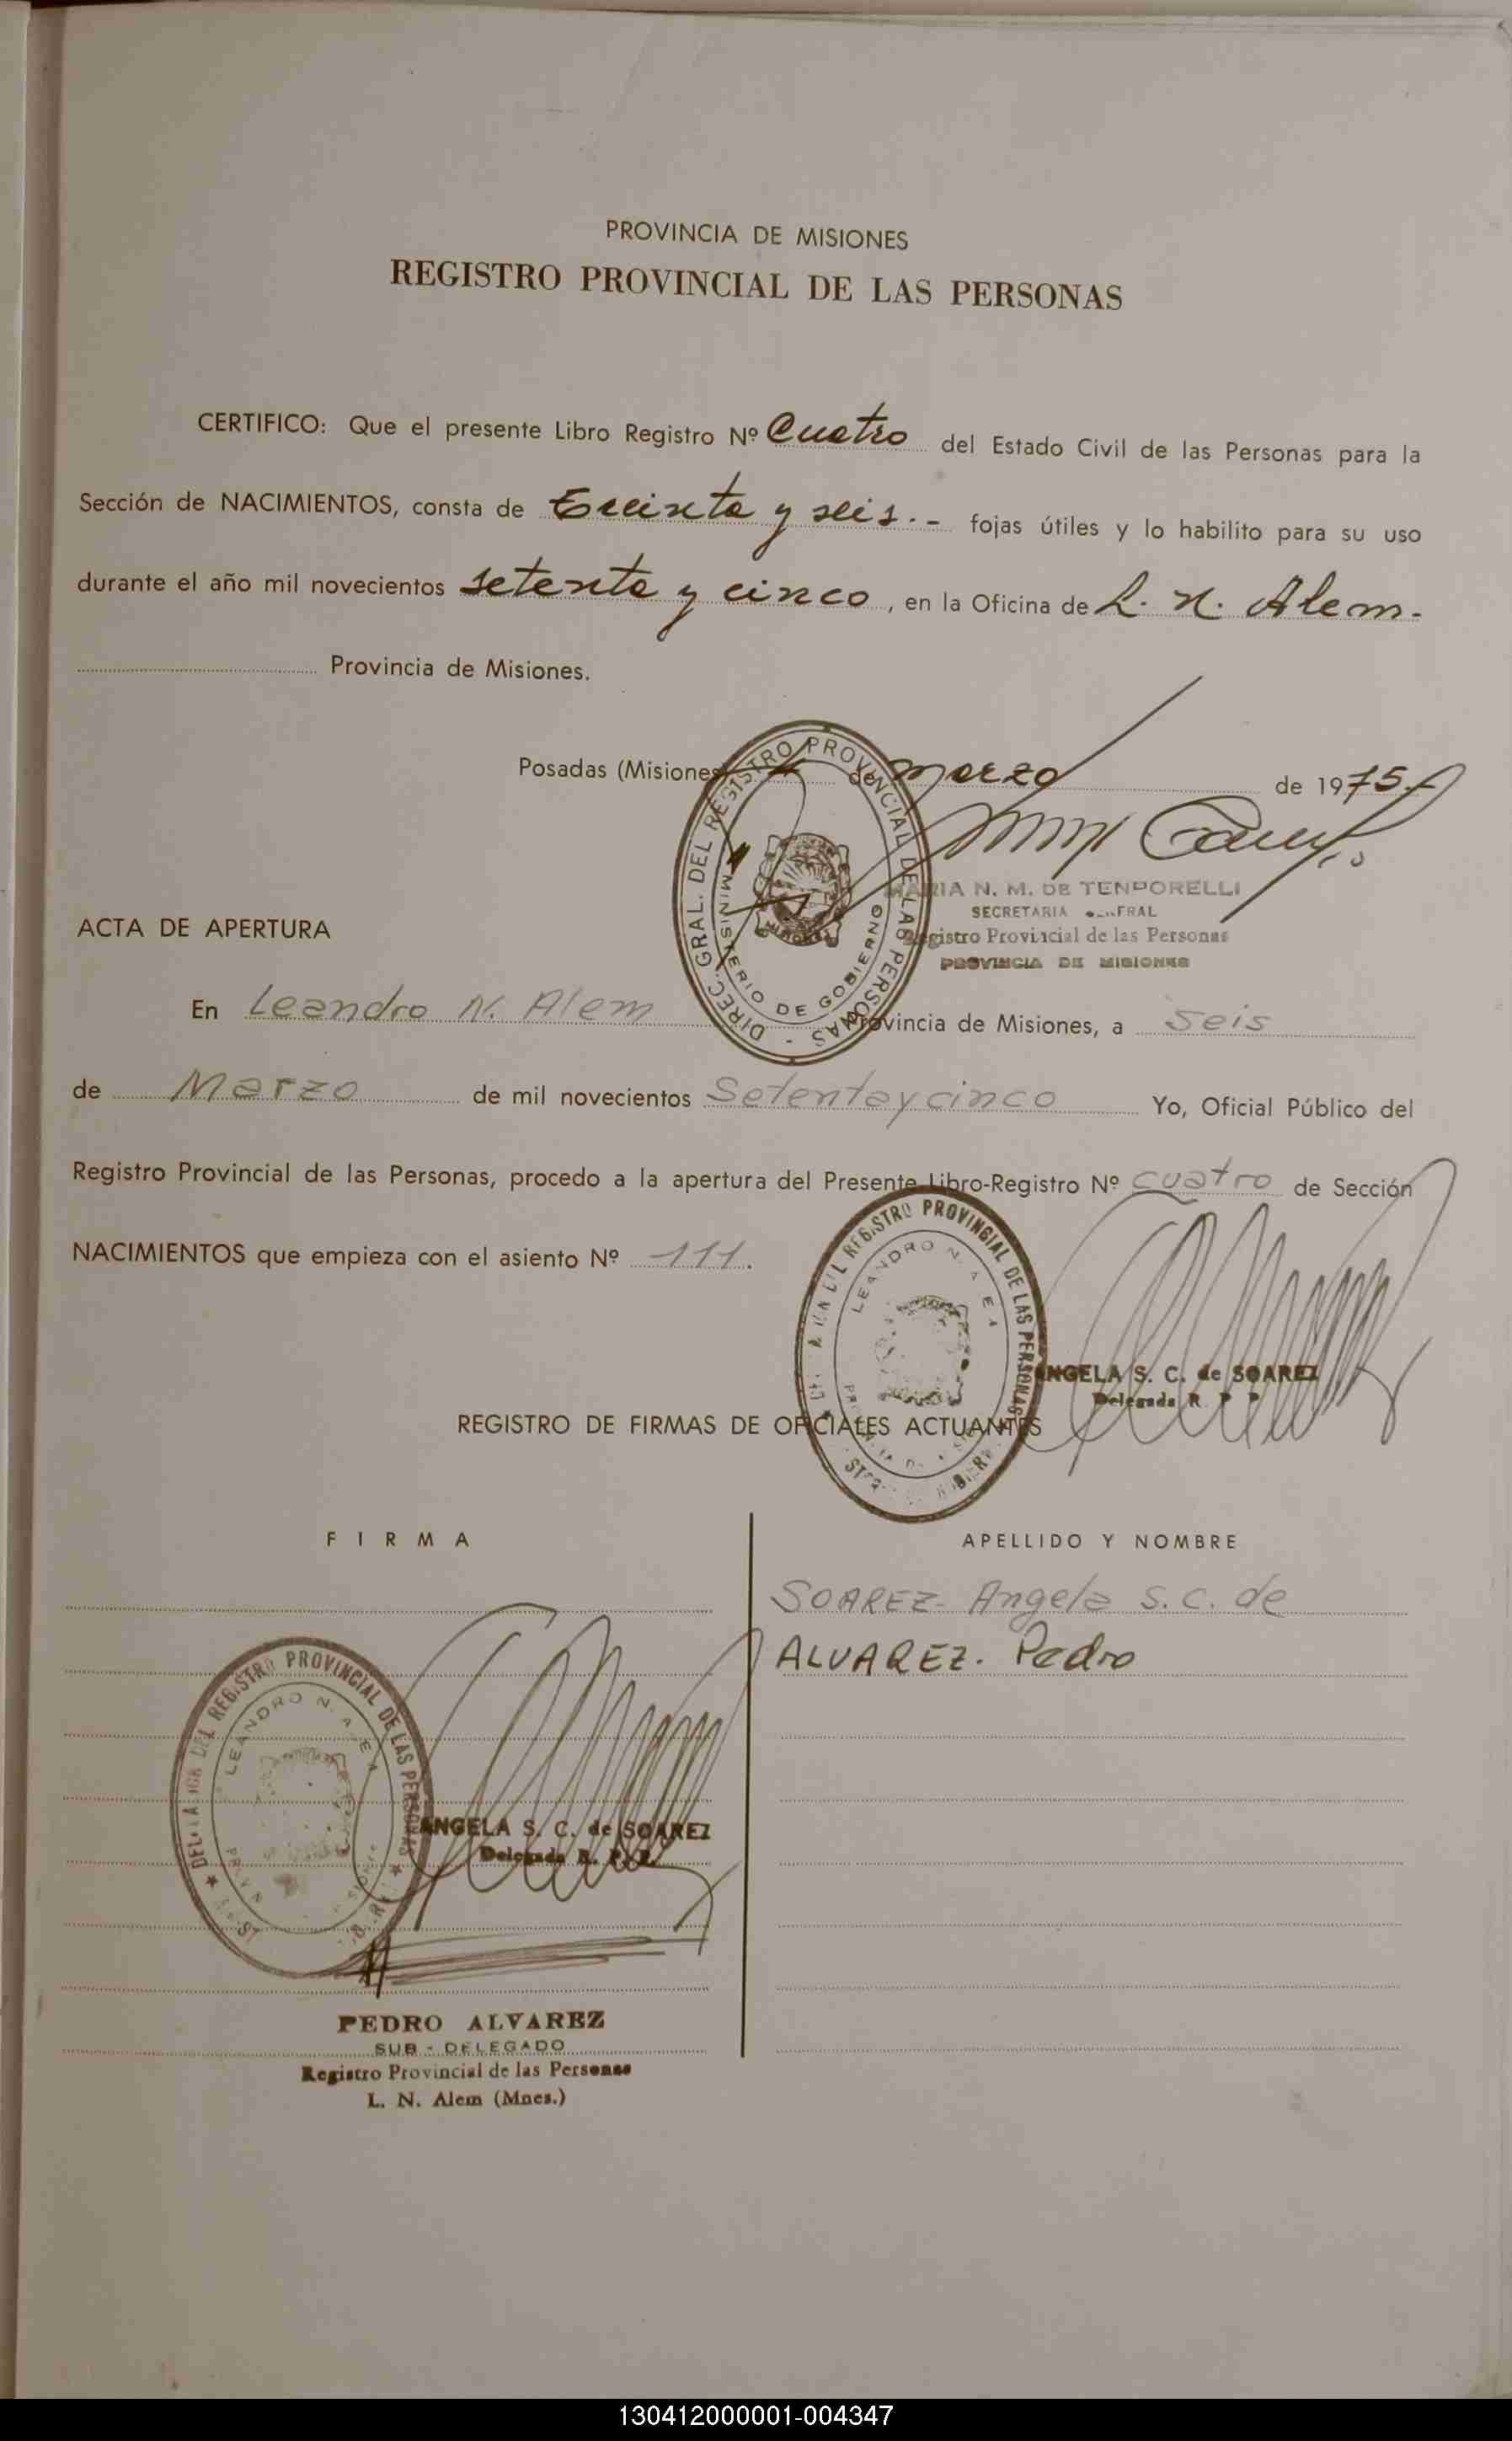 PROVINCIA DE MISIONES
REGISTRO PROVINCIAL DE LAS PERSONAS
CERTIFICO: Que el presente Libro Registro Nº Cuatro del Estado Civil de las Personas para la
Sección de NACIMIENTOS, consta de Treinta y seis.- fojas útiles y lo habilito para su uso
durante el año mil novecientos setenta y cinco, en la Oficina de L. N. Alem.
Provincia de Misiones.
Posadas (Misiones) de marzo de 1975.
DIREC. GRAL. DEL REGISTRO PROVINCIAL DE LAS PERSONAS -
MINISTERIO DE GOBIERNO
MARIA N. M. DE TEMPORELLI
SECRETARIA GENERAL
Registro Provincial de las Personas
PROVINCIA DE MISIONES
ACTA DE APERTURA
En Leandro N. Alem Provincia de Misiones, a Seis
de Marzo de mil novecientos Setenta y cinco Yo, Oficial Público del
Registro Provincial de las Personas, procedo a la apertura del Presente Libro-Registro Nº cuatro de Sección
NACIMIENTOS que empieza con el asiento Nº 111.
REGISTRO PROVINCIAL DE LAS PERSONAS
LEANDRO N.
ANGELA S. C. de SOAREZ
Delegada R. P. P.
REGISTRO DE FIRMAS DE OFICIALES ACTUANTES
FIRMA
APELLIDO Y NOMBRE
SOAREZ- Angela S.C. de
ALVAREZ. Pedro
DEL REGISTRO PROVINCIAL DE LAS PERSONAS
LEANDRO N.
ANGELA S. C. de SOAREZ
Delegada R. P. P.
PEDRO ALVAREZ
SUB - DELEGADO
Registro Provincial de las Personas
L. N. Alem (Mnes.)
130412000001-004347